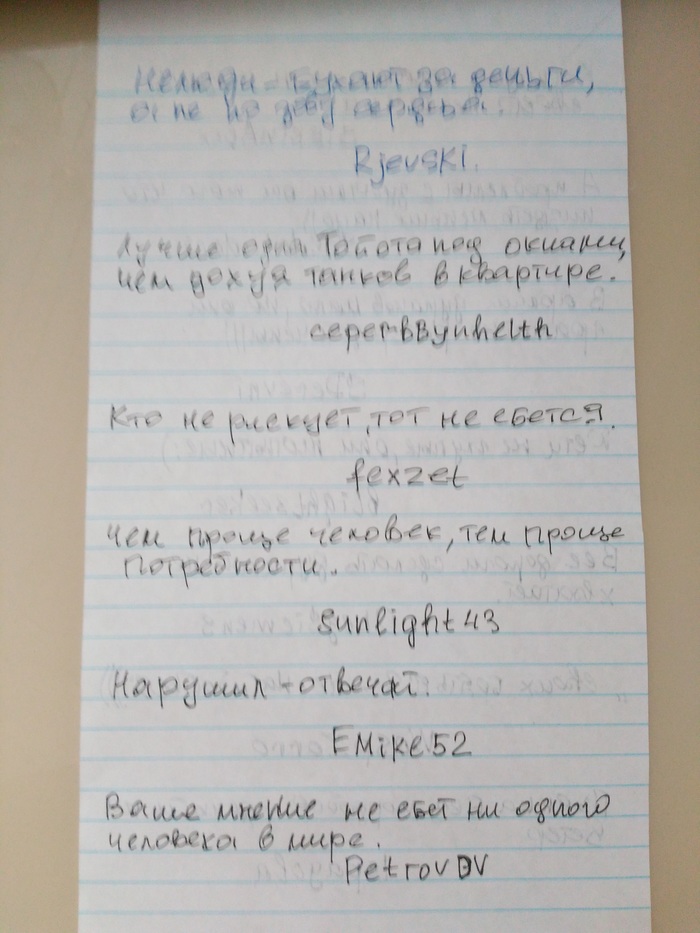 Нелюди - бухают за деньги,
а не по зову сердца.
Rjevski.
Лучше один Тойота под окнами,
чем дохуя танков в квартире.
Кто не рискует, тот не ебется.
fexzet
Чем проще человек, тем проще
потребности.
Sunlight43
Нарушил - отвечай.
EMike52
Ваше мнение не ебет ни одного
человека в мире.
PetrovDV